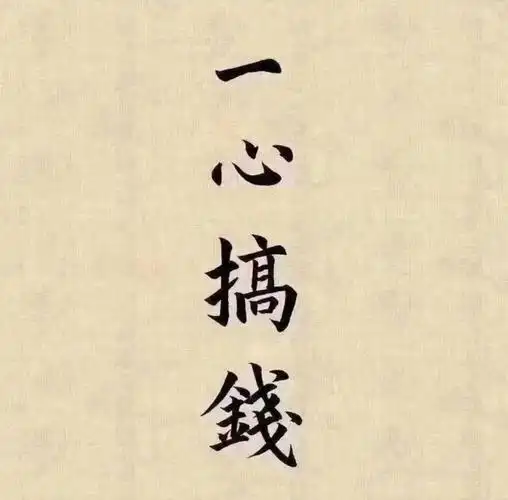 一心搞錢